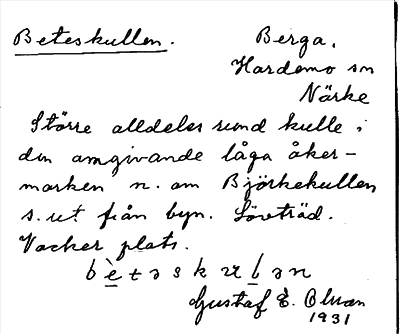 Beteskullen.
Berga,
Hardemo sn
Närke
Större alldeles rund kulle i
den omgivande låga åker-
marken n. om Björkekullen
s. ut från byn. Lövträd.
Vacker plats.
Gustaf E. Olsson
1931